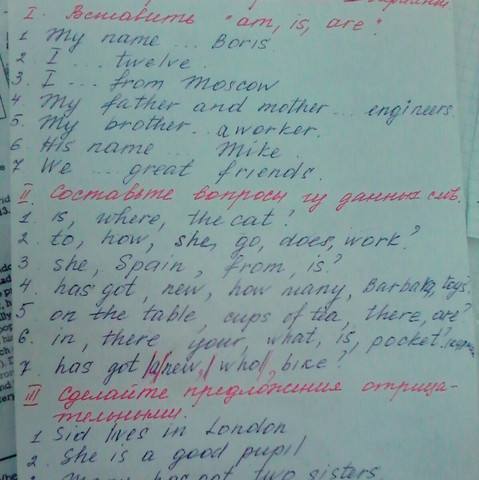 I. Вставить "am, is, are".
1 My name ... Boris
2 I ... twelve.
3. I ... from Moscow
4. My father and mother ... engineers.
5. My brother ... a worker.
6. His name ... Mike.
7 We ... great friends.
II Составьте вопросы из данных слов.
1. is, where, the cat?
2. to, how, she, go, does, work?
3 she, Spain, from, is?
4. has got, new, how many, Barbara, toys?
5 on the table, cups of tea, there, are?
6. in, there your, what, is, pocket?
7. has got /a/new,/ who/ bike?
III Сделайте предложения отрица-
тельными.
1 Sid lives in London
2. She is a good pupil
has got two sisters